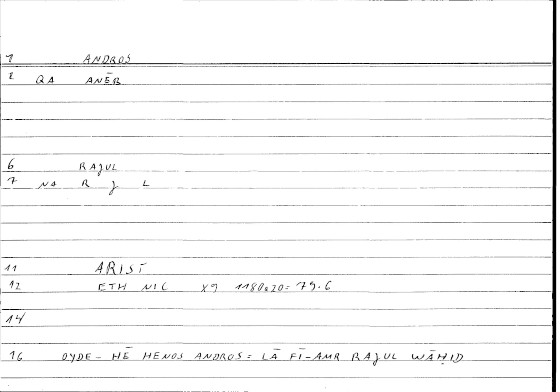 1 ANDROS
2 QA ANĒR
6 RAJUL
7 NA R J L
11 ARIST
12 ETH NIC X9 1180a20= 79.6
14
16 OYDE-HĒ HENOS ANDROS= LĀ FĪ-AMR RAJUL WĀḤID